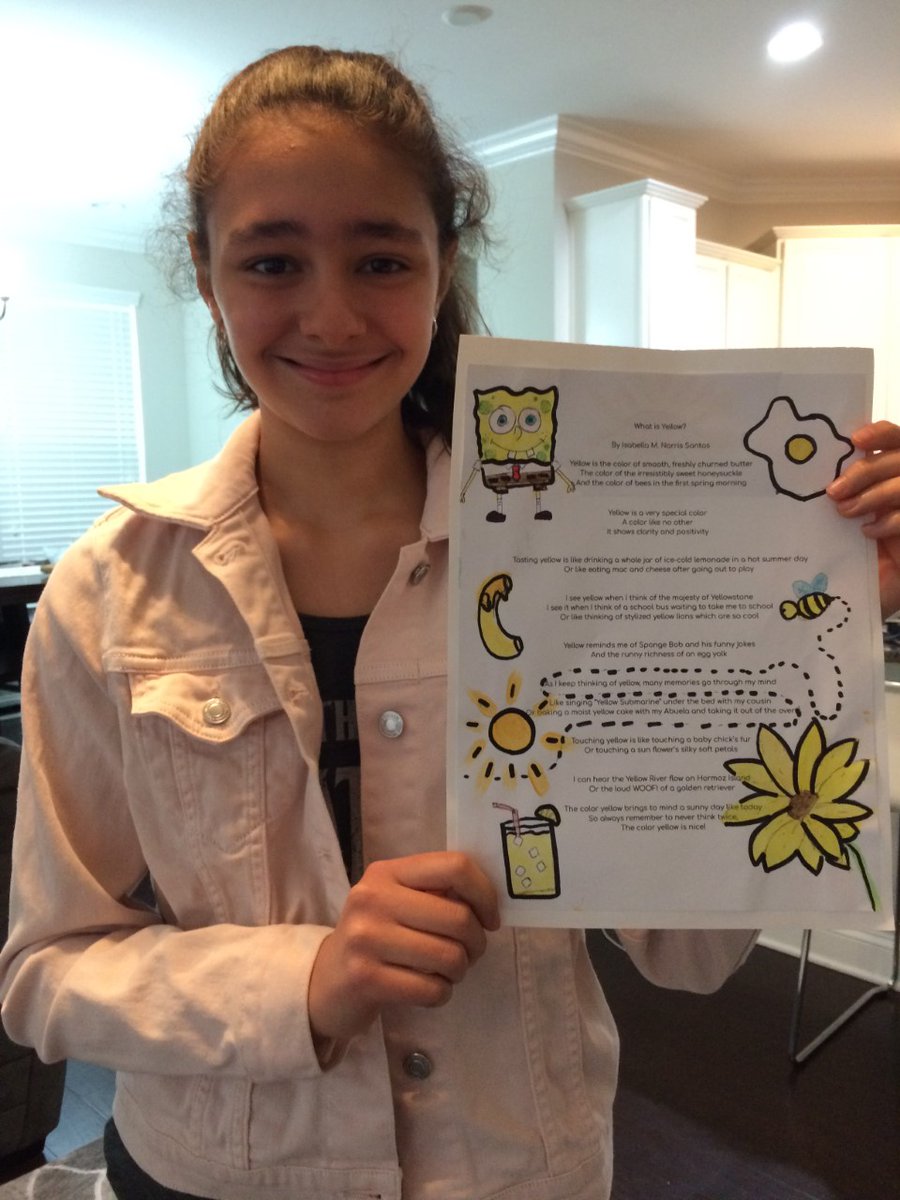 What is Yellow?
By Isabella M. Norris Santos
Yellow is the color of smooth, freshly churned butter
The color of the irresistibly sweet honeysuckle
And the color of bees in the first spring morning
Yellow is a very special color
A color like no other
It shows clarity and positivity
Tasting yellow is like drinking a whole jar of ice-cold lemonade in a hot summer day
Or like eating mac and cheese after going out to play
I see yellow when I think of the majesty of Yellowstone
I see it when I think of a school bus waiting to take me to school
Or like thinking of stylized yellow lions which are so cool
Yellow reminds me of Sponge Bob and his funny jokes
And the runny richness of an egg yolk
As I keep thinking of yellow, many memories go through my mind
Like singing "Yellow Submarine" under the bed with my cousin
Or baking a moist yellow cake with my Abuela and taking it out of the oven
Touching yellow is like touching a baby chick's fur
Or touching a sun flower's silky soft petals
I can hear the Yellow River flow on Hormoz Island
Or the loud WOOF! of a golden retriever
The color yellow brings to mind a sunny day like today
So always remember to never think twice,
The color yellow is nice!
TH